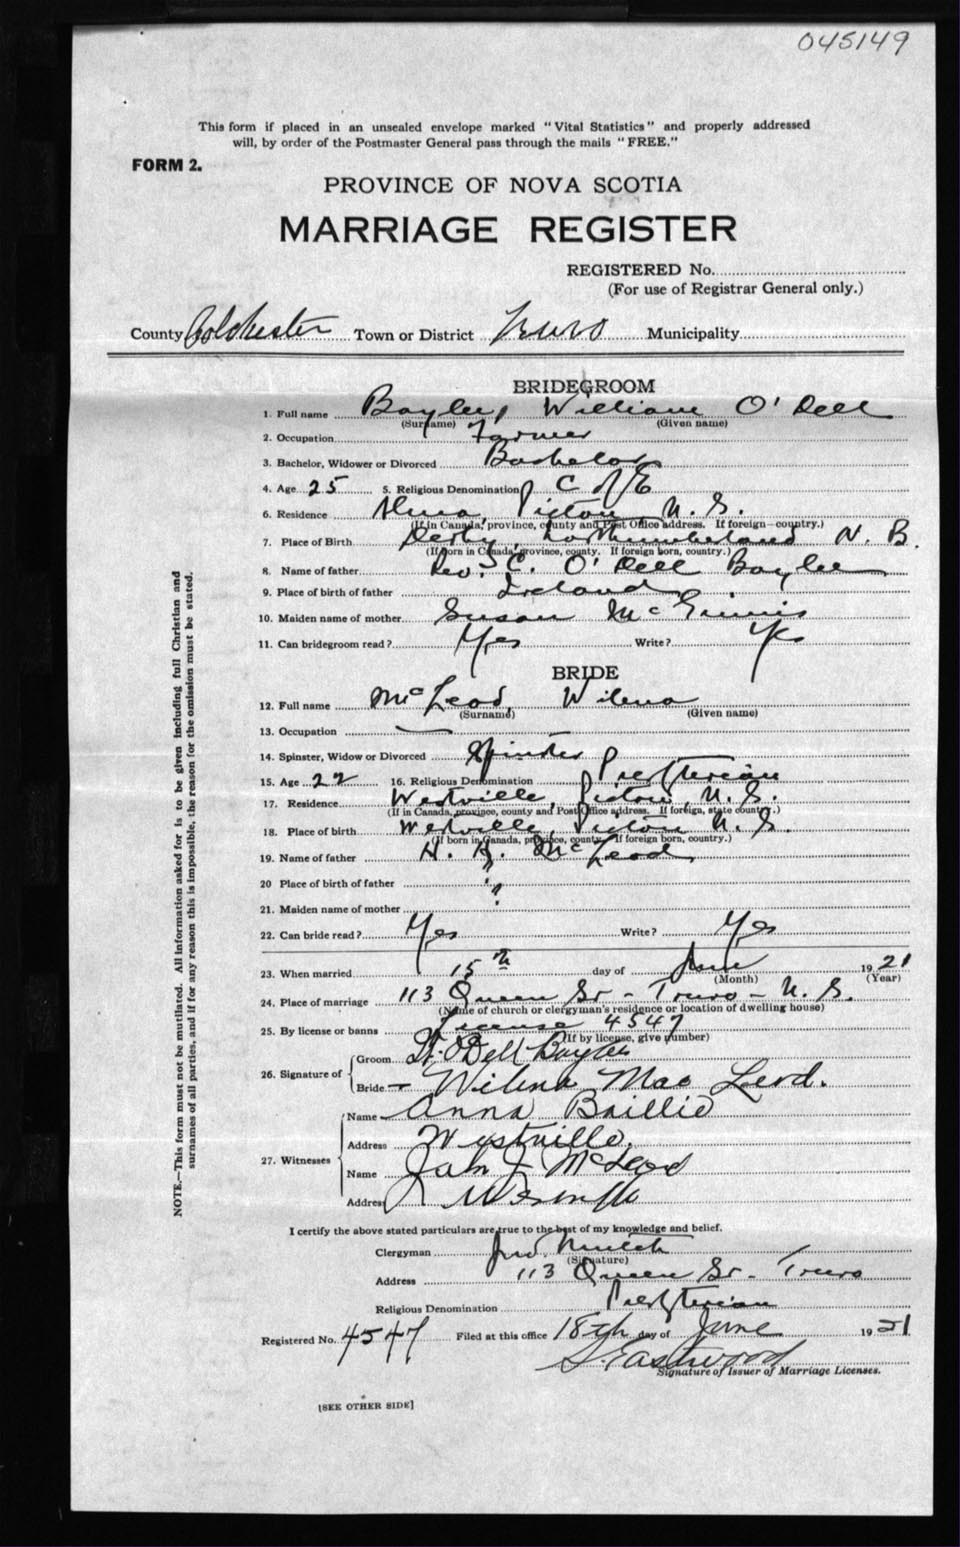 045149
This form if placed in an unsealed envelope marked "Vital Statistics" and properly addressed
will, by order of the Postmaster General pass through the mails "FREE."
FORM 2.
PROVINCE OF NOVA SCOTIA
MARRIAGE REGISTER
REGISTERED No.
(For use of Registrar General only.)
County Colchester Town or District Truro Municipality
BRIDEGROOM
1. Full name Baylee, William O'Dell
(Surname) (Given name)
2. Occupation Farmer
3. Bachelor, Widower or Divorced Bachelor
4. Age 25 5. Religious Denomination C of E
6. Residence Alma Pictou N. S.
(If in Canada, province, county and Post Office address. If foreign—country.)
7. Place of Birth Derby, Northumberland N. B.
(If born in Canada, province, county. If foreign born, country.)
8. Name of father Rev. C. O'Dell Baylee
9. Place of birth of father Ireland
10. Maiden name of mother Susan McGinnis
11. Can bridegroom read? Yes Write? Yes
BRIDE
12. Full name McLeod, Wilena
(Surname) (Given name)
13. Occupation —
14. Spinster, Widow or Divorced Spinster
15. Age 22 16. Religious Denomination Presbyterian
17. Residence Westville, Pictou, N. S.
(If in Canada, province, county and Post Office address. If foreign, state country.)
18. Place of birth Westville, Pictou N. S.
(If born in Canada, province, county. If foreign born, country.)
19. Name of father H. McLeod
20 Place of birth of father ?
21. Maiden name of mother
22. Can bride read? Yes Write? Yes
23. When married 15th day of June 1921
(Month) (Year)
24. Place of marriage 113 Queen St - Truro - N. S.
(Name of church or clergyman's residence or location of dwelling house)
25. By license or banns License 4547
(If by license, give number)
26. Signature of Groom W. O'Dell Baylee
Bride — Wilena MacLeod.
27. Witnesses Name Anna Baillie
Address Westville.
Name John J McLeod
Address Westville
I certify the above stated particulars are true to the best of my knowledge and belief.
Clergyman Jno. Mutch
(Signature)
Address 113 Queen St - Truro
Religious Denomination Presbyterian
Registered No. 4547 Filed at this office 18th day of June 1921
S. Eastwood
Signature of Issuer of Marriage Licenses.
[SEE OTHER SIDE]
NOTE.—This form must not be mutilated. All information asked for is to be given including full Christian and
surnames of all parties, and if for any reason this is impossible, the reason for the omission must be stated.